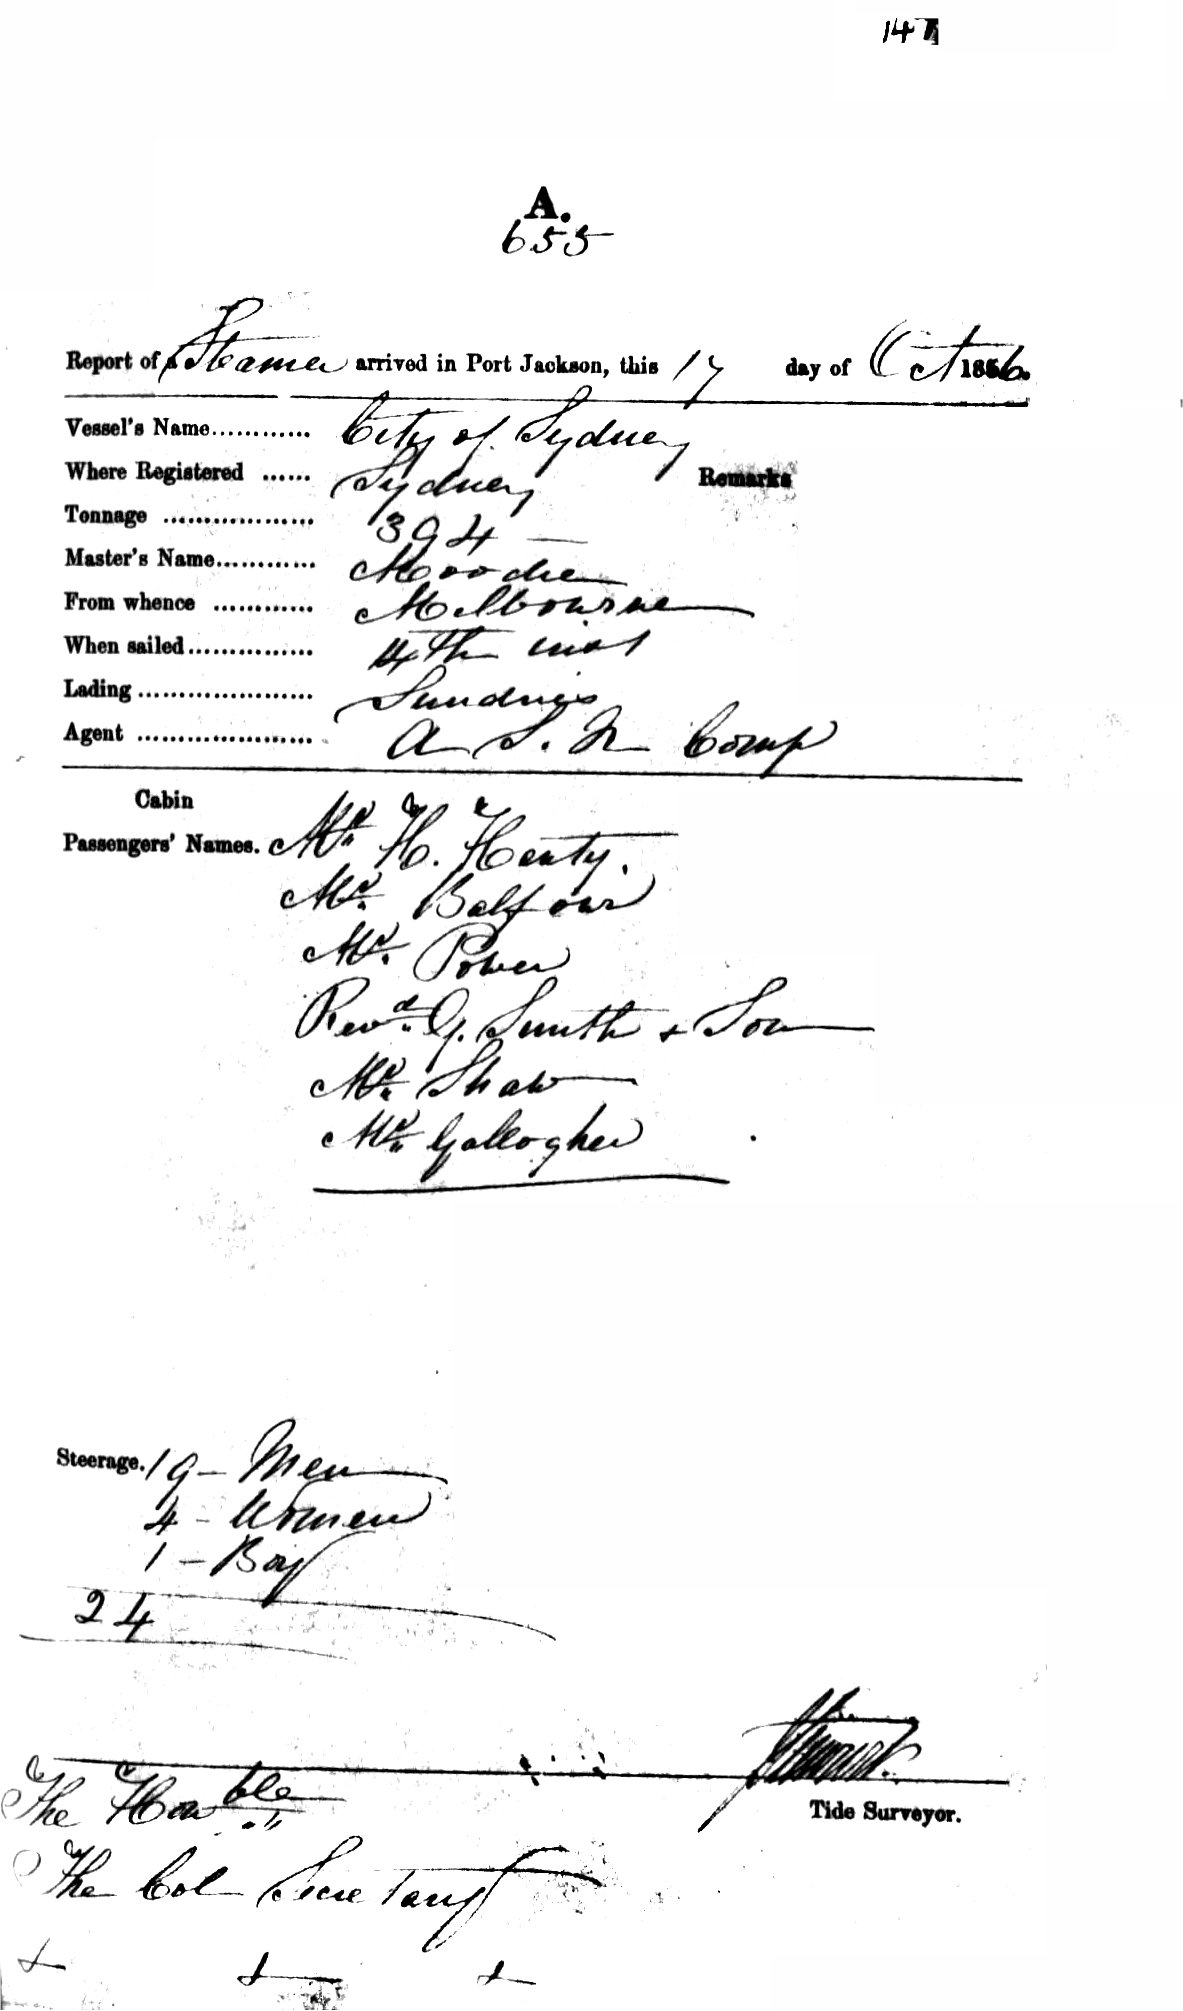 147
A.
655
Report of a Steamer arrived in Port Jackson, this 17 day of Oct 1856.
Vessel's Name............ City of Sydney
Where Registered ...... Sydney
Remarks
Tonnage .................. 394 —
Master's Name............ Moodie
From whence ............ Melbourne
When sailed............... 14th inst
Lading ..................... Sundries
Agent ..................... A S. N Comp
Cabin
Passengers' Names. Mr. H. Henty.
Mr. Balfour
Mr. Power
Revd. G. Smith & Son
Mr. Shaw
Mr. Gallogher
Steerage. 19 – Men
4 – Women
1 – Boy
24
Tide Surveyor.
The Honble
The Col Secretary